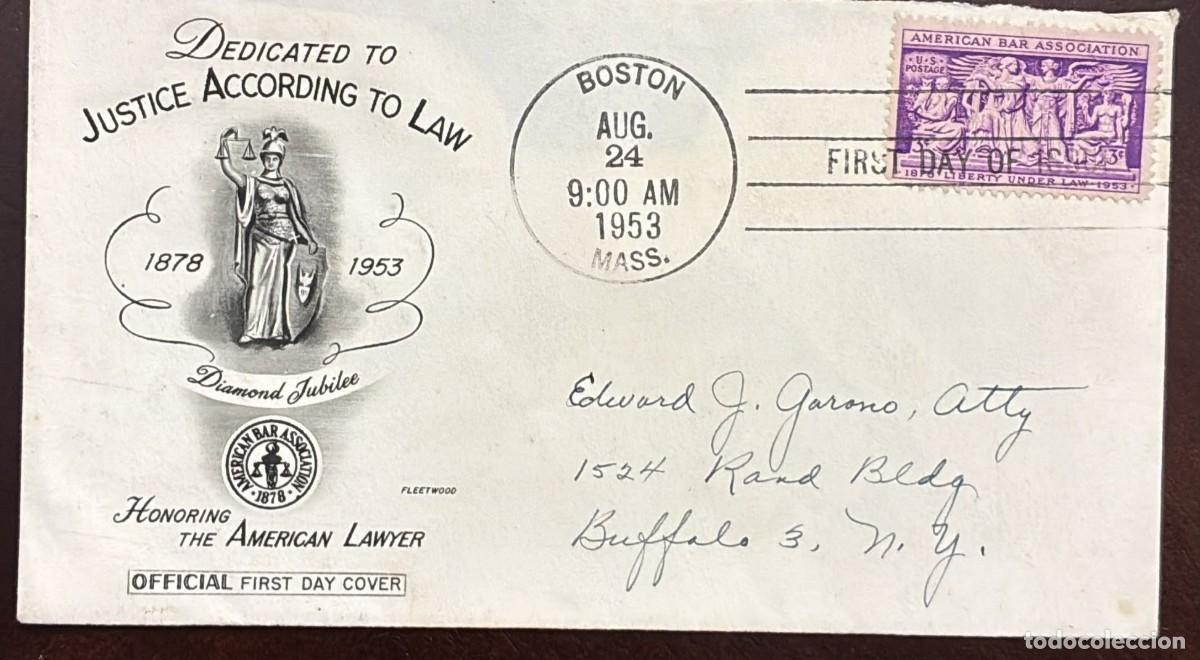 DEDICATED TO
JUSTICE ACCORDING TO LAW
1878 1953
Diamond Jubilee
AMERICAN BAR ASSOCIATION
· 1878 ·
FLEETWOOD
HONORING
THE AMERICAN LAWYER
OFFICIAL FIRST DAY COVER
BOSTON
AUG.
24
9:00 AM
1953
MASS.
AMERICAN BAR ASSOCIATION
· U · S ·
POSTAGE
3¢ 3¢
LIBERTY UNDER LAW · 1953 ·
FIRST DAY OF
Edward J. Garono, Atty
1524 Rand Bldg
Buffalo 3, N. Y.
todocoleccion